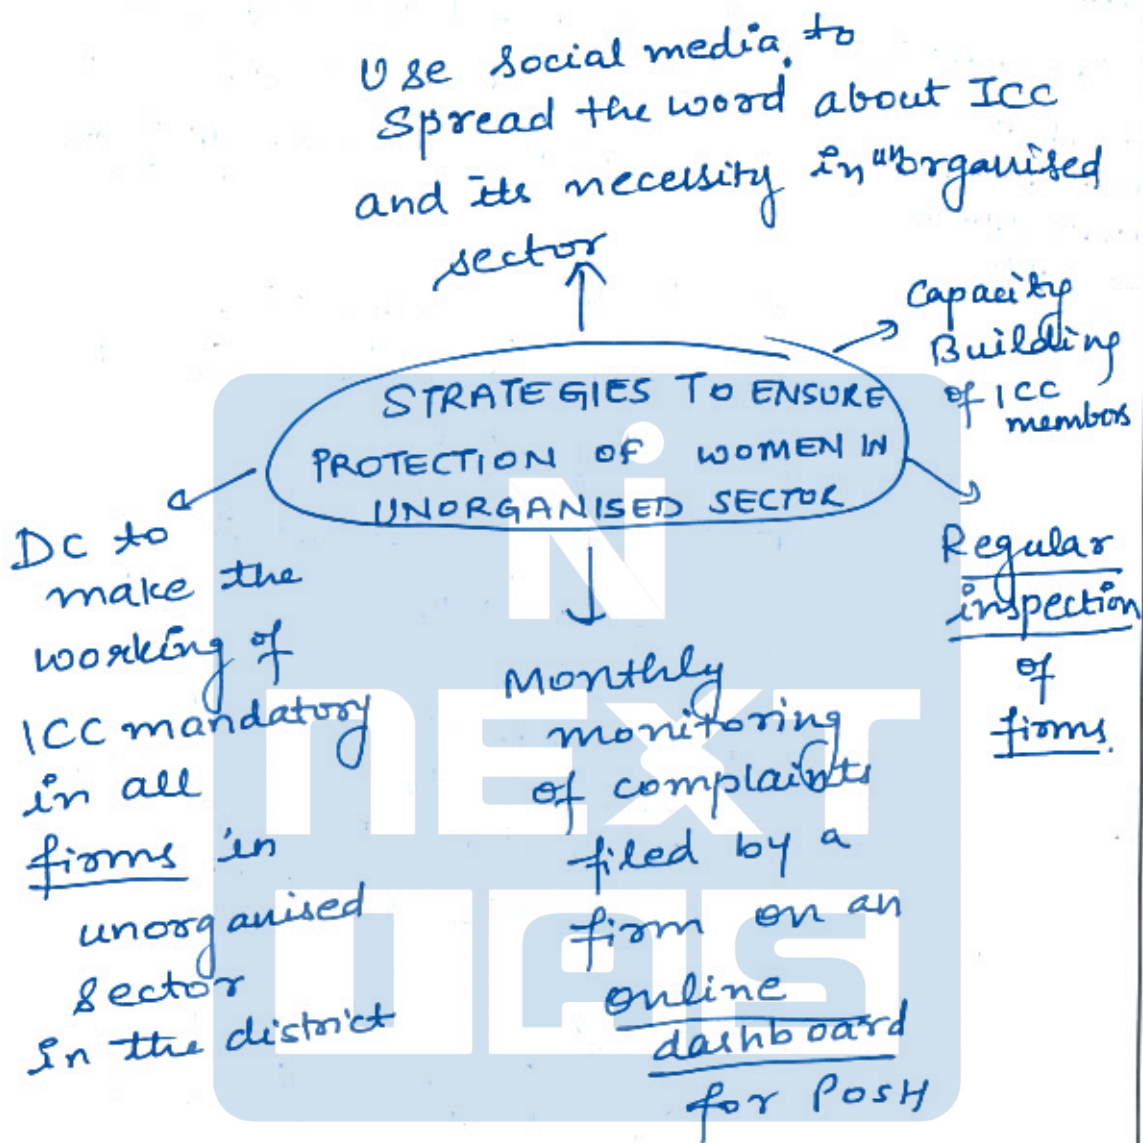 Use social media to
Spread the word about ICC
and its necessity in unorganised
sector
Capacity
Building
of ICC
members
STRATEGIES TO ENSURE
PROTECTION OF WOMEN IN
UNORGANISED SECTOR
DC to
make the
working of
ICC mandatory
in all
firms in
unorganised
sector
in the district
Monthly
monitoring
of complaints
filed by a
firm on an
online
dashboard
for POSH
Regular
inspection
of
firms.
NEXT
IAS